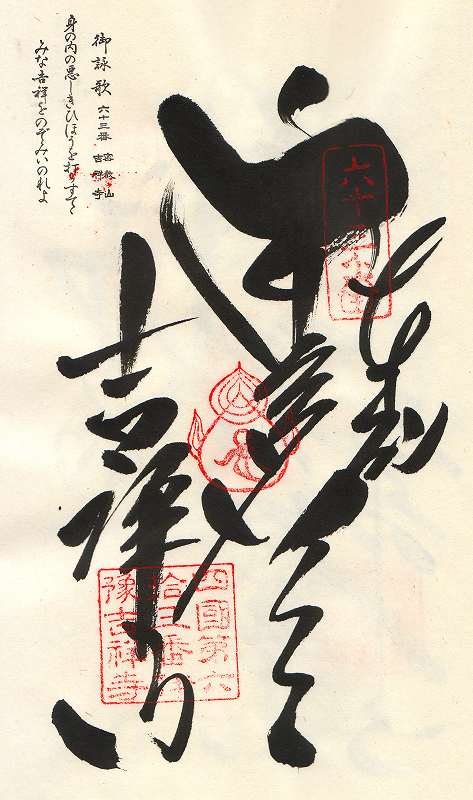 六十三番
奉
吉祥寺
四國第六
拾三番伊
豫吉祥寺
御詠歌 六十三番 密教山 吉祥寺
身の内の悪しきひほうを打ちすてて
みな吉祥をのぞみいのれよ